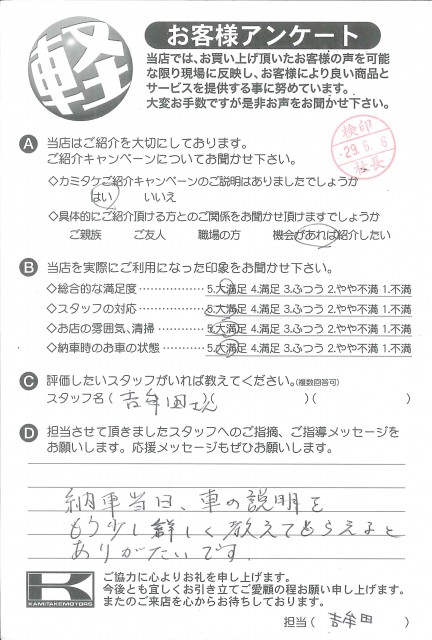 軽
お客様アンケート
当店では、お買い上げ頂いたお客様の声を可能
な限り現場に反映し、お客様により良い商品と
サービスを提供する事に努めています。
大変お手数ですが是非お声をお聞かせ下さい。
検印
29.5.6
社長
A 当店はご紹介を大切にしております。
ご紹介キャンペーンについてお聞かせ下さい。
◇カミタケご紹介キャンペーンのご説明はありましたでしょうか
はい いいえ
◇具体的にご紹介頂ける方とのご関係をお聞かせ頂けますでしょうか
ご親族 ご友人 職場の方 機会があれば紹介したい
B 当店を実際にご利用になった印象をお聞かせ下さい。
◇総合的な満足度 5.大満足 4.満足 3.ふつう 2.やや不満 1.不満
◇スタッフの対応 5.大満足 4.満足 3.ふつう 2.やや不満 1.不満
◇お店の雰囲気、清掃 5.大満足 4.満足 3.ふつう 2.やや不満 1.不満
◇納車時のお車の状態 5.大満足 4.満足 3.ふつう 2.やや不満 1.不満
C 評価したいスタッフがいれば教えてください。(複数回答可)
スタッフ名( 吉牟田さん )( )( )
D 担当させて頂きましたスタッフへのご指摘、ご指導メッセージを
お願いします。応援メッセージもぜひお願いします。
納車当日、車の説明を
もう少し詳しく教えてもらえると
ありがたいです。
K
KAMITAKEMOTORS
ご協力に心よりお礼を申し上げます。
今後とも宜しくお引き立てご愛顧の程お願い申し上げます。
またのご来店を心からお待ちしております。
担当( 吉牟田 )